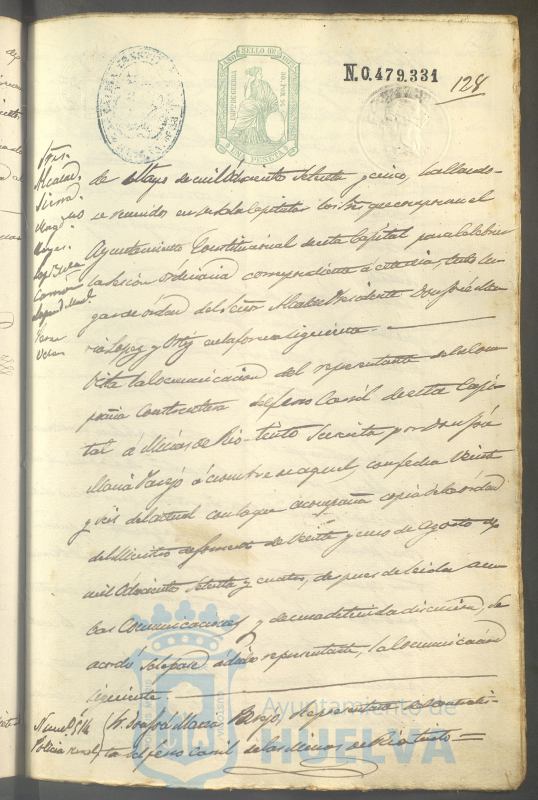 SELLO 11º
IMPTO DE GUERRA
50 CS. DE PESETA
UNA PESETA
N.0.479.331
128
Sres.
Alcalde
Sierra
de Mayo de mil ochociento setenta y cinco, hallando-
se reunidos en la Sala Capitular los Sres. que componen el
Ayuntamiento Constitucional de esta Capital para celebrar
la sesion ordinaria correspondiente á este dia, tubo lu-
gar de órden del Señor Alcalde Presidente Don José Ma-
ria Lopez y Ortiz en la forma siguiente.
Vista la Comunicacion del representante de la Com-
pañia Constructora del ferro Carril de esta Capi-
tal á Minas de Rio-tinto suscrita por Don José
Maria Parejo á nombre de aquel, con fecha veinte
y seis del actual con la que acompaña copia de la órden
del Ministro de fomento de veinte y cinco de Agosto de
mil ochociento setenta y cuatro, despues de leidas am-
bas Comunicaciones y de una detenida discusion, se
acordó se le pase á dicho representante, la Comunicacion
siguiente.
Numº 514
Policia rural
Sr. Don José Maria Parejo, Representante del contratis-
ta del ferro Carril de las Minas de Rio tinto
Ayuntamiento de
HUELVA